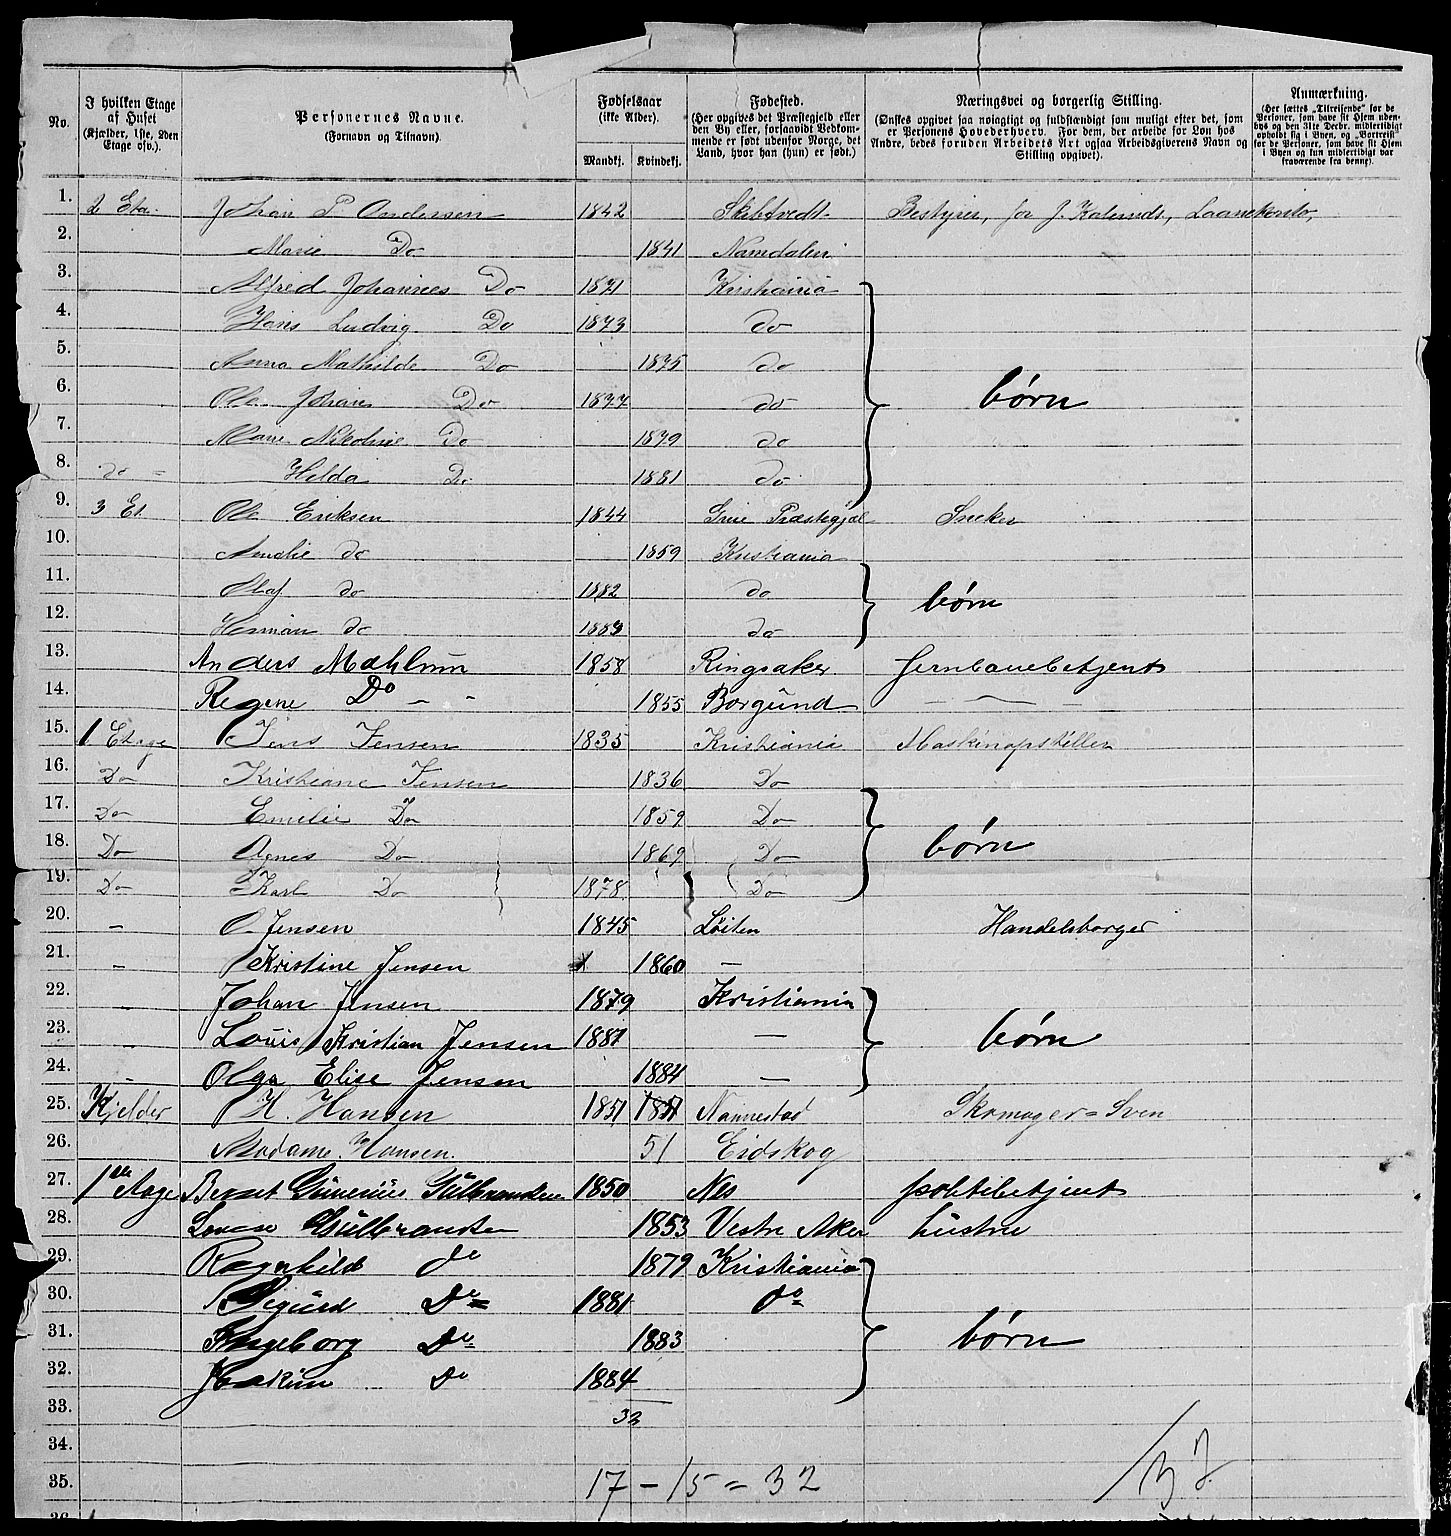 No.
I hvilken Etage af Huset (Kjælder, 1ste, 2den Etage osv.).
Personernes Navne. (Fornavn og Tilnavn).
Fødselsaar (ikke Alder). Mandkj. Kvindekj.
Fødested. (Her opgives det Præstegjeld eller den By eller, forsaavidt Vedkommende er født udenfor Norge, det Land, hvor han (hun) er født.)
Næringsvei og borgerlig Stilling. (Ønskes opgivet saa nøiagtigt og fuldstændigt som muligt efter det, som er Personens Hovederhverv. For dem, der arbeide for Løn hos Andre, bedes foruden Arbeidets Art ogsaa Arbeidsgiverens Navn og Stilling opgivet).
Anmærkning. (Her sættes „Tilreisende" for de Personer, som have sit Hjem udenbys og den 31te Decbr. midlertidigt opholdt sig i Byen, og „Bortreist" for de Personer, som have sit Hjem i Byen og kun midlertidigt var fraværende fra denne).
1. 2 Eta. Johan P Andersen 1842 Skibtvedt. Bestyrer, for J. Laanekonto,
2. Marie Do 1841 Namdalen
3. Alfred Johannes Do 1871 Kristiania
4. Hans Ludvig Do 1873 do
5. Anna Mathilde Do 1875 do
6. Ole Johan Do 1877 do børn
7. Marie Nikoline Do 1879 do
8. do = Hilda Do 1881 do
9. 3 Et. Ole Eriksen 1844 Grue Præstegjæl Sneker
10. Amalie do 1859 Kristiania
11. Olaf do 1882 do børn
12. Herman do 1883 do
13. Anders Mæhlum 1858 Ringsaker Jernbanebetjent
14. Regine Do - - 1855 Borgund — — —
15. 1 Etage Jens Jensen 1835 Kristiania Maskinopstiller
16. Do Kristiane Jensen 1836 Do
17. Do Emilie Do 1859 Do
18. Do Agnes Do 1869 Do børn
19. Do Karl Do 1878 Do
20. — O. Jensen 1845 Løiten Handelsborger
21. - Kristine Jensen 1860 —
22. - Johan Jensen 1879 Kristiania
23. - Louis Kristian Jensen 1881 — børn
24. - Olga Elise Jensen 1884 —
25. Kjelder H. Hansen 1851 1851 Nannestad Skomager=Sven
26. Madame Hansen. 51 Eidskog
27. 1ste Aage Bernt Gunerius Gulbrandsen 1850 Nes politibetjent
28. Lovise Gulbrandsen 1853 Vestre Aker hustru
29. Ragnhild do 1879 Kristiania
30. Sigurd Do 1881 do
31. Ingeborg Do 1883 børn
32. Joakim Do 1884
33. 32
34.
35. 17 – 15 = 32